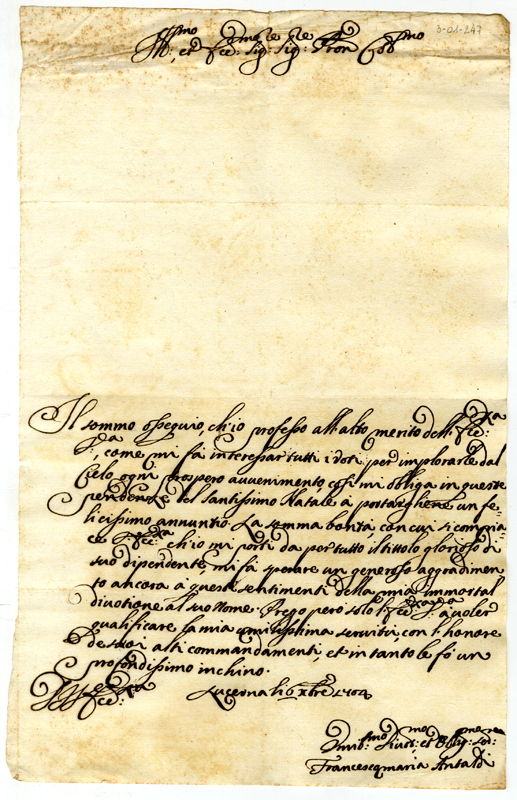 3-01-247
Ill:mo et Ecc:mo Sig:re Sig:re Pron Col:mo
Il sommo ossequio, ch'io professo all'alto merito dell'Ecc:za
V:ra, come mi fà interessar tutti i voti per implorarle dal
Cielo ogni prospero auuenimento, così mi obliga in queste
pendenze del Santissimo Natale à portarghene un fe-
licissimo annuntio. La somma bontà, con cui si compia-
ce V:ra Ecc:za ch'io mi porti da per tutto il tittolo glorioso di
suo dipendente, mi fà sperare un generoso aggradimen-
to ancora à questi sentimenti della mia immortal
diuotione al suo Nome. Prego però solo l'Ecc:za V:ra à uoler
qualificare la mia umilissima seruitù, con l'honore
de suoi alti commandamenti, et in tanto le fò un
profondissimo inchino.
Di V:ra Ecc:za
Lucerna li 6 Xbre 1704
Vmil:mo Diuot:mo et Oblig:mo Ser:re
Francescomaria Antaldi